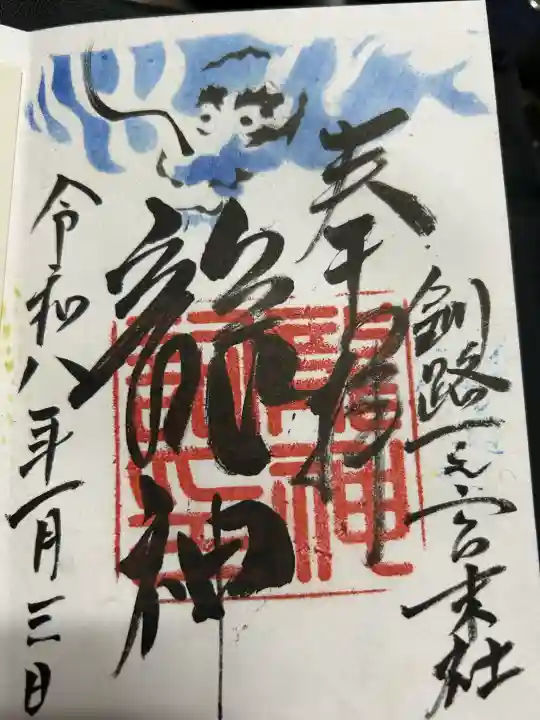 奉拝
釧路一之宮末社
龍神
令和八年一月三日